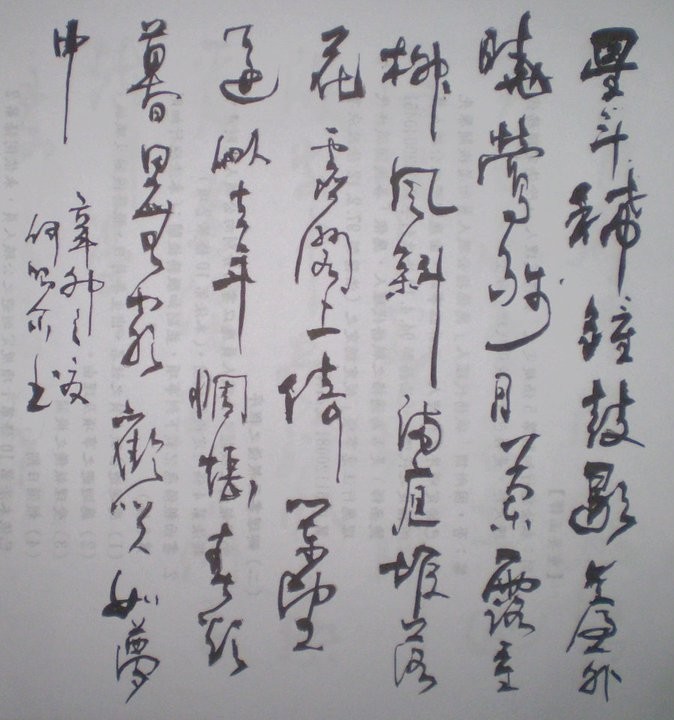 星斗稀鐘鼓歇簾外
曉鶯殘月蘭露重
柳風斜滿庭堆落
花虛閣上倚闌望
還似去年惆悵春欲
暮思無窮歡笑如夢
中
辛卯之夏
何